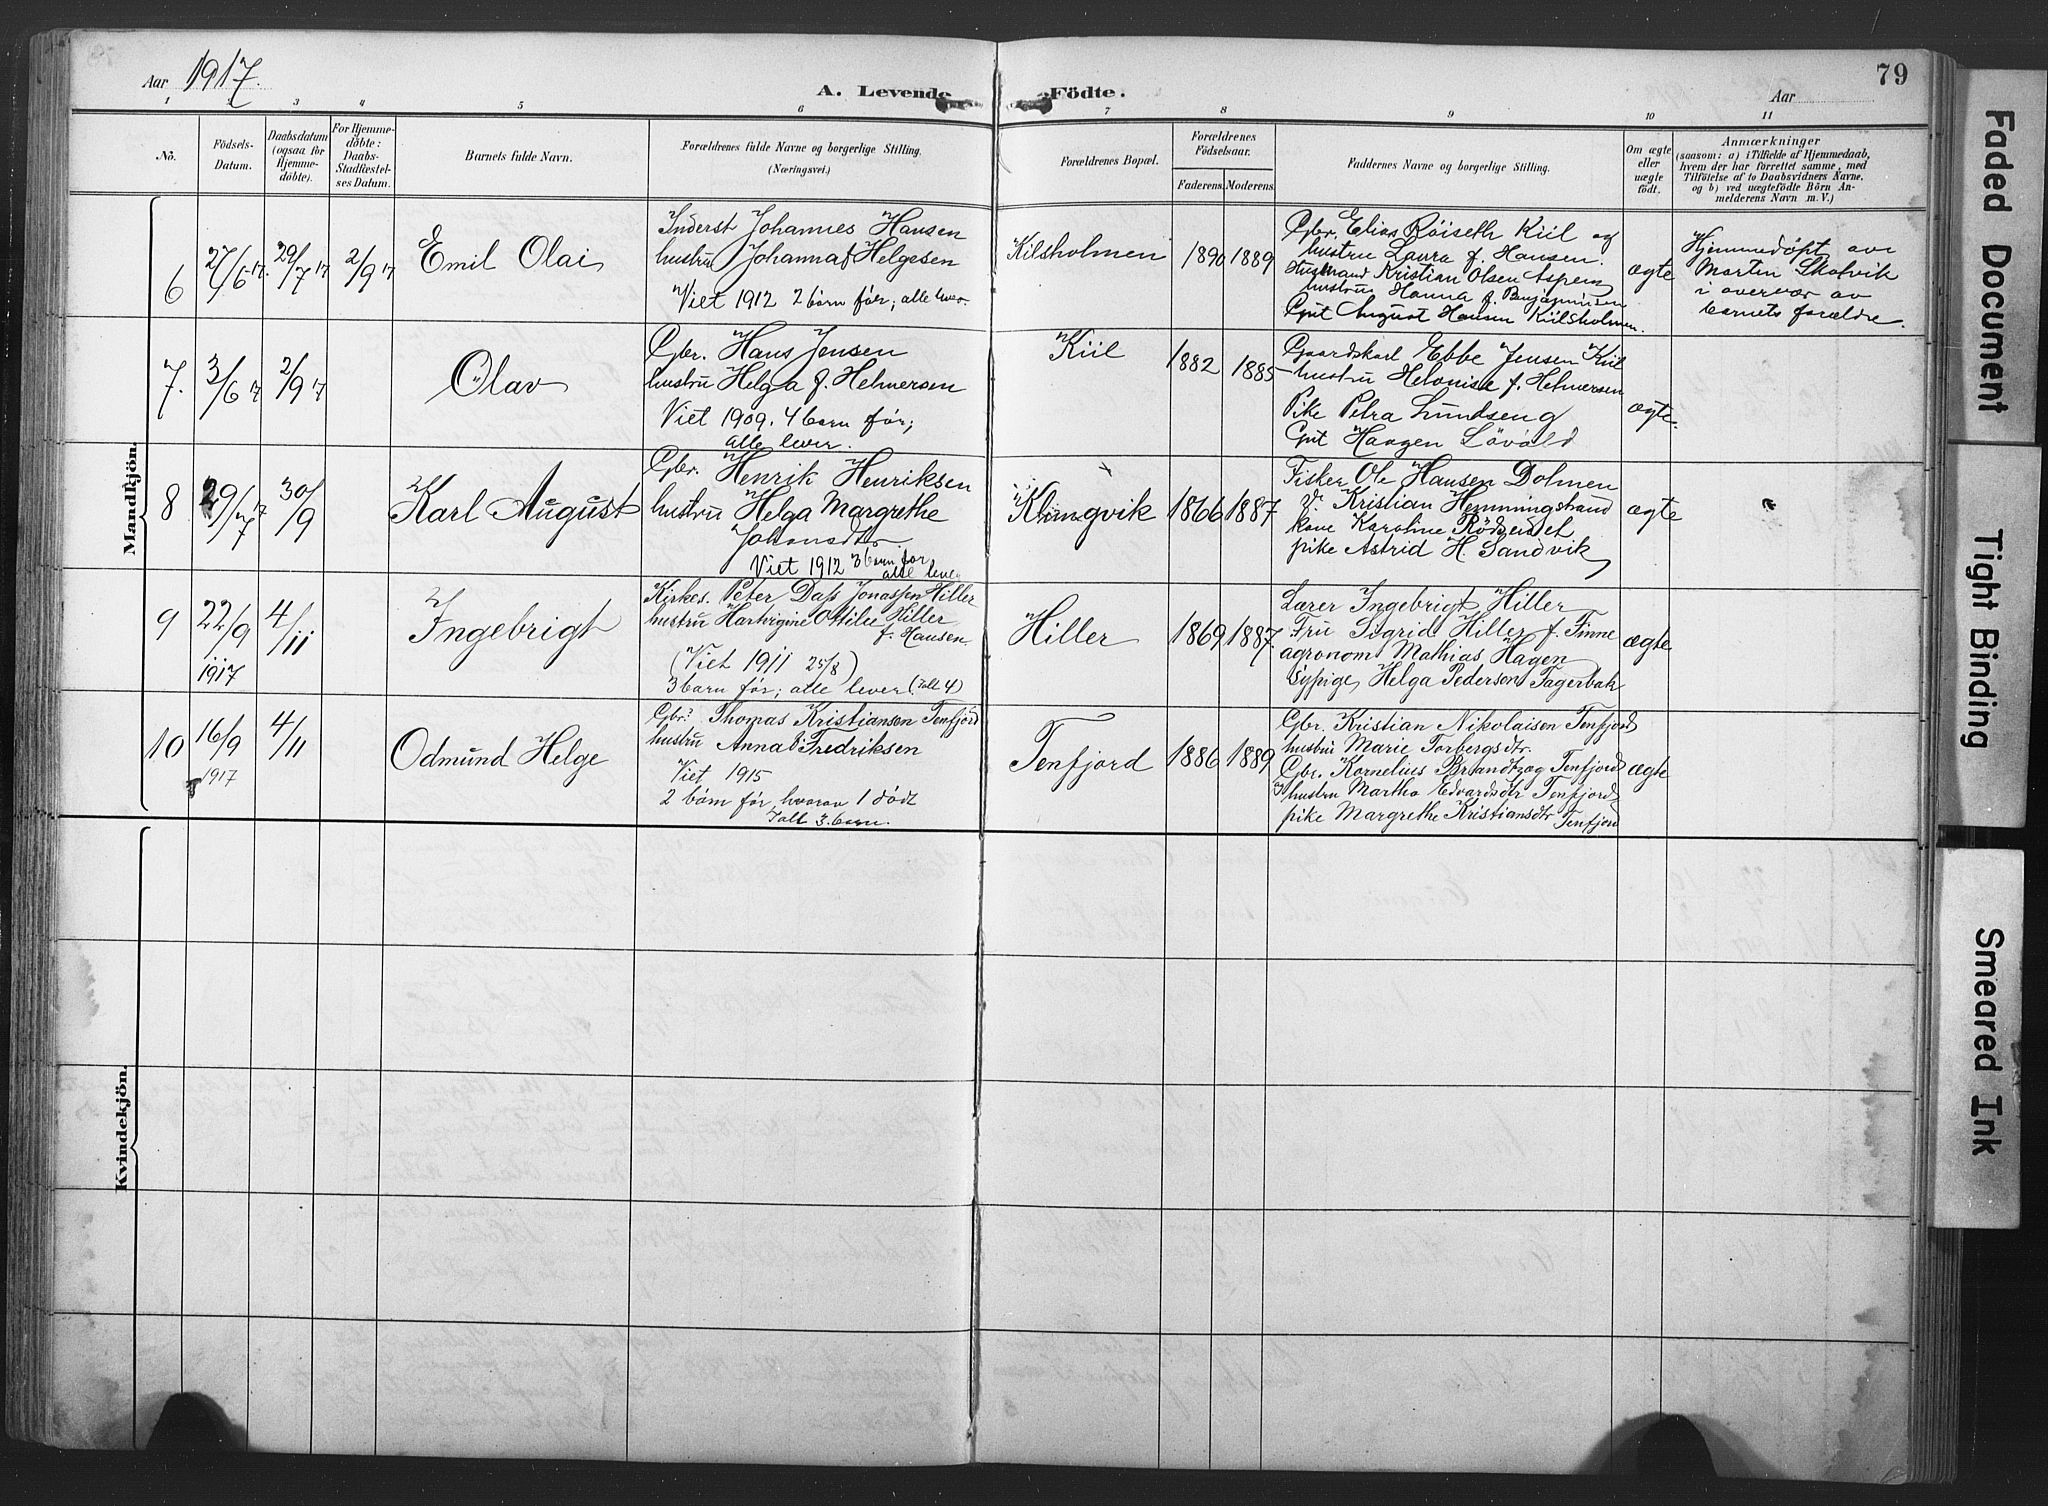 Aar 1917.
A. Levende Födte.
Aar
79
1 2 3 4 5 6 7 8 9 10 11
No.
Födsels-
Datum.
Daabsdatum
(ogsaa for
Hjemme-
döbte).
For Hjemme-
döbte:
Daabs-
Stadfæstel-
ses Datum.
Barnets fulde Navn.
Forældrenes fulde Navne og borgerlige Stilling.
(Næringsvei.)
Forældrenes Bopæl.
Forældrenes
Födselsaar.
Faderens. Moderens.
Faddernes Navne og borgerlige Stilling.
Om ægte
eller
uægte
födt.
Anmærkninger
(saasom: a) i Tilfælde af Hjemmedaab,
hvem der har forrettet samme, med
Tilföielse af to Daabsvidners Navne,
og b) ved uægtefödte Börn An-
melderens Navn m. V.)
Mandkjön.
6
27/6 17.
29/7 17
2/9 17
Emil Olai
Inderst Johannes Hansen
hustru Johanna f Helgesen
Viet 1912 2 barn för; alle lever
Kilsholmen
1890
1889
Gbr. Elias Röiseth Kiil og
hustru Laura f. Hansen.
Husmand Kristian Olsen Aspern
hustru Hanna f. Benjaminsen
Gut August Hansen Kiilsholmen.
ægte
Hjemmedöpt av
Morten Skolvik
i overvær av
barnets forældre.
7.
3/6 17
2/9 17
Olav
Gbr. Hans Jensen
hustru Helga f. Helmersen
Viet 1909. 4 barn før;
alle lever.
Kiil
1882
1885
Gaardskarl Ebbe Jensen Kiil
hustru Helonise f. Helmersen
Pike Petra Lundseng
Gut Haagen Lövold
ægte.
8
29/7 17
30/9
Karl August
Gbr. Henrik Henriksen
hustru Helga Margrethe
Johansdtr
Viet 1912 3 barn før
alle lever
Klungvik
1866
1887
Fisker Ole Hansen Dolmen
do. Kristian Hemmingstrand
kone Karoline Rödseudet
pike Astrid H. Sandvik
ægte
9
22/9
1917
4/11
Ingebrigt
Kirkes. Peter Dass Jonassen Hiller
hustru Hartvigine Ottilie Hiller
f. Hansen
(Viet 1911 25/8)
3 barn før; alle lever (Ialt 4)
Hiller
1869
1887.
Lærer Ingebrigt Hiller
Fru Sigrid Hiller f. Finne
agronom Mathias Hagen
Sypige Helga Pedersen Fagerbak
ægte
10
16/9
1917
4/11
Odmund Helge
Gbr. Thomas Kristiansen Tenfjord
hustru Anna Fredriksen
Viet 1915
2 barn før, hvorav 1 dödt
Ialt 3 barn.
Tenfjord
1886
1889
Gbr. Kristian Nikolaisen Tenfjord
hustru Marie Torbergsdtr.
Gbr. Kornelius Brandtzæg Tenfjord
og hustru Martha Edvardsdtr Tenfjord,
pike Margrethe Kristiansdtr Tenfjord
ægte
Kvindekjön.
Faded Document
Tight Binding
Smeared Ink